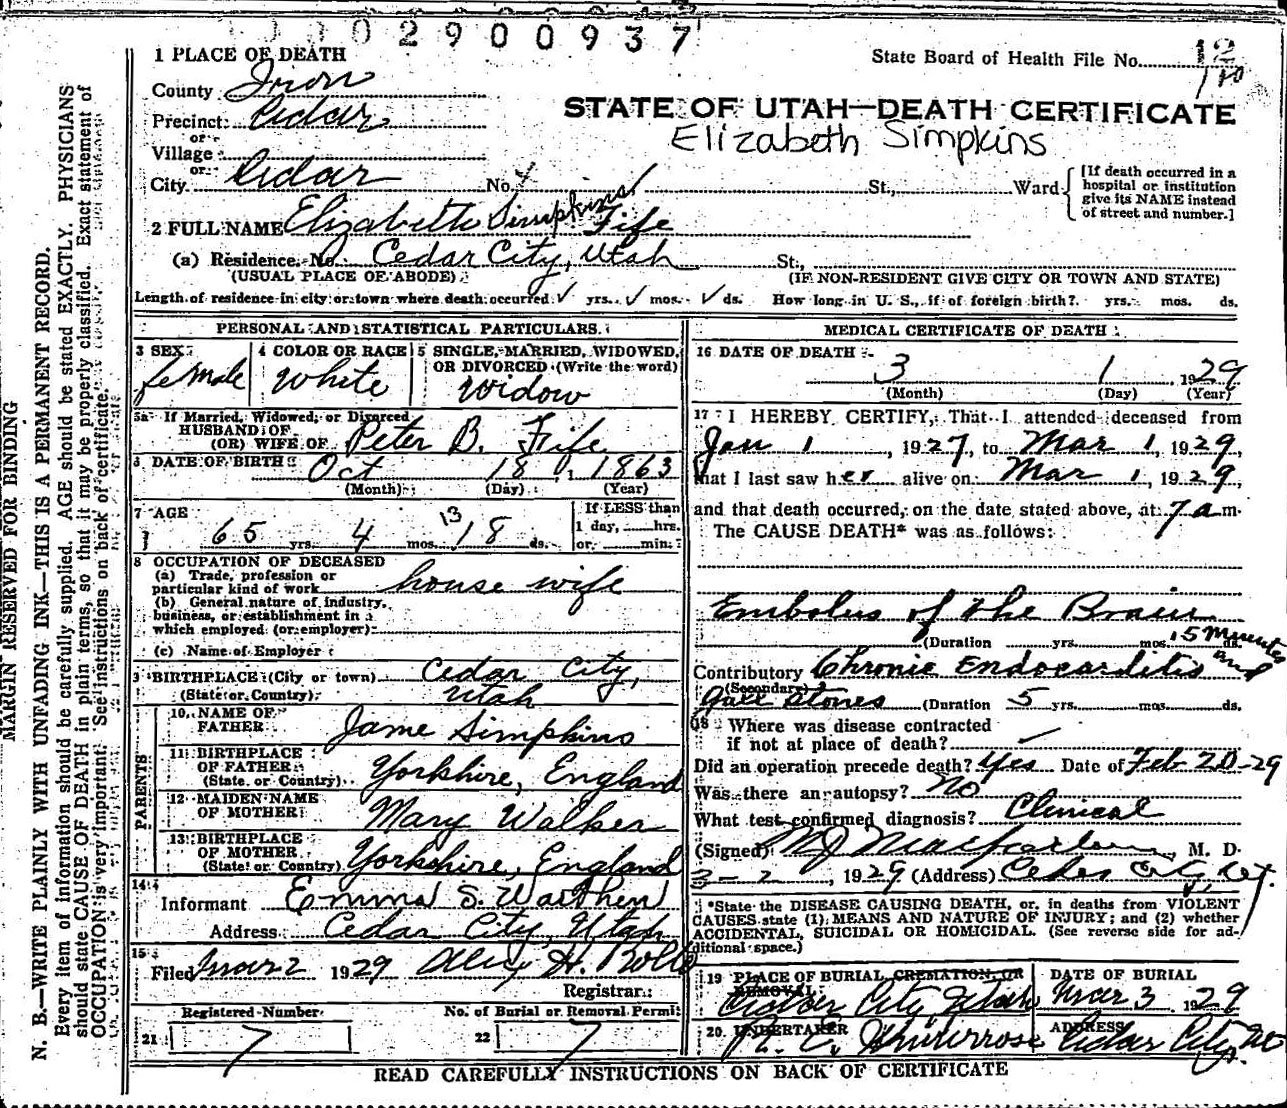 0 2 9 0 0 9 3 7
1 PLACE OF DEATH
State Board of Health File No. 12
County Iron
STATE OF UTAH—DEATH CERTIFICATE
Precinct Cedar
Elizabeth Simpkins
or
Village
or
City Cedar No. St., Ward
[If death occurred in a
hospital or institution
give its NAME instead
of street and number.]
2 FULL NAME Elizabeth Simpkins Fife
(a) Residence. No. Cedar City, Utah St.,
(USUAL PLACE OF ABODE) (IF NON-RESIDENT GIVE CITY OR TOWN AND STATE)
Length of residence in city or town where death occurred ✓ yrs. ✓ mos. ✓ ds. How long in U. S., if of foreign birth? yrs. mos. ds.
PERSONAL AND STATISTICAL PARTICULARS
3 SEX female
4 COLOR OR RACE White
5 SINGLE, MARRIED, WIDOWED,
OR DIVORCED (Write the word)
Widow
5a If Married, Widowed, or Divorced
HUSBAND OF
(OR) WIFE OF Peter B. Fife
6 DATE OF BIRTH Oct 18, 1863
(Month) (Day) (Year)
7 AGE
65 yrs. 4 mos. 13 18 ds.
If LESS than
1 day, hrs.
or min.
8 OCCUPATION OF DECEASED
(a) Trade, profession or
particular kind of work house wife
(b) General nature of industry,
business, or establishment in
which employed (or employer)
(c) Name of Employer
9 BIRTHPLACE (City or town) Cedar City,
(State or Country) Utah
PARENTS
10 NAME OF
FATHER Jame Simpkins
11 BIRTHPLACE
OF FATHER
(State or Country) Yorkshire, England
12 MAIDEN NAME
OF MOTHER Mary Walker
13 BIRTHPLACE
OF MOTHER
(State or Country) Yorkshire, England
14
Informant Emma S. Warthen
Address Cedar City Utah
15
Filed Mar 2 1929 H.
Registrar
Registered Number No. of Burial or Removal Permit
21 7 22 7
MEDICAL CERTIFICATE OF DEATH
16 DATE OF DEATH
3 1 1929
(Month) (Day) (Year)
17 I HEREBY CERTIFY, That I attended deceased from
Jan 1, 1927, to Mar 1, 1929,
that I last saw her alive on Mar 1, 1929,
and that death occurred, on the date stated above, at 7 a m.
The CAUSE DEATH* was as follows:
Embolus of the Brain
(Duration yrs. mos. ds. 15 Minutes
Contributory Chronic Endocarditis and
(Secondary)
Gall Stones (Duration 5 yrs. mos. ds.
18 Where was disease contracted
if not at place of death?
Did an operation precede death? Yes Date of Feb 20-29
Was there an autopsy? No
What test confirmed diagnosis? Clinical
(Signed) M J Macfarlane, M. D.
3-2, 1929 (Address) Cedar City, Ut.
*State the DISEASE CAUSING DEATH, or, in deaths from VIOLENT
CAUSES state (1) MEANS AND NATURE OF INJURY; and (2) whether
ACCIDENTAL, SUICIDAL OR HOMICIDAL. (See reverse side for ad-
ditional space.)
19 PLACE OF BURIAL, CREMATION, OR
REMOVAL
Cedar City, Utah
DATE OF BURIAL
Mar 3 1929
20. UNDERTAKER
ADDRESS
Cedar City
READ CAREFULLY INSTRUCTIONS ON BACK OF CERTIFICATE
MARGIN RESERVED FOR BINDING
N. B.—WRITE PLAINLY WITH UNFADING INK—THIS IS A PERMANENT RECORD.
Every item of information should be carefully supplied. AGE should be stated EXACTLY. PHYSICIANS
should state CAUSE OF DEATH in plain terms, so that it may be properly classified. Exact statement of
OCCUPATION is very important. See instructions on back of certificate.